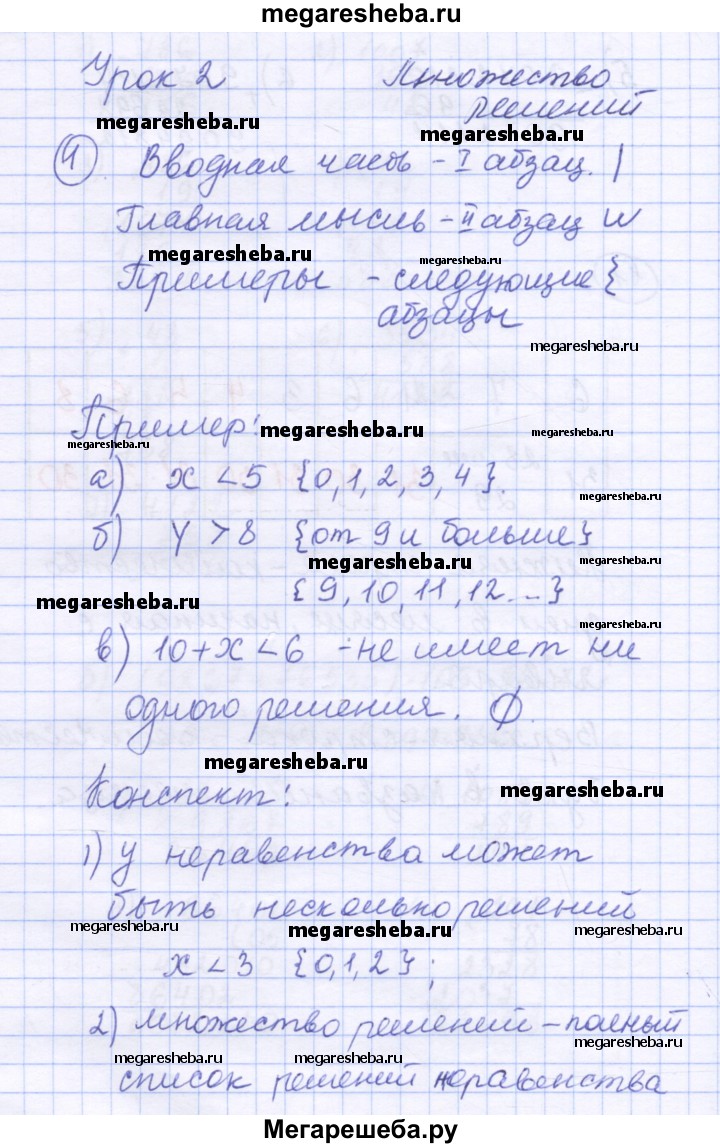 megaresheba.ru
Урок 2 Множество
решений
megaresheba.ru megaresheba.ru
1 Вводная часть - I абзац. |
Главная мысль - II абзац w
megaresheba.ru
Примеры - следующие {
абзацы
megaresheba.ru
Пример:
megaresheba.ru megaresheba.ru megaresheba.ru
а) x < 5 {0, 1, 2, 3, 4}.
б) y > 8 {от 9 и больше}
megaresheba.ru megaresheba.ru
{9, 10, 11, 12...}
megaresheba.ru
в) 10 + x < 6 - не имеет ни
одного решения. ∅.
megaresheba.ru
Конспект:
megaresheba.ru
1) у неравенства может
быть несколько решений
megaresheba.ru megaresheba.ru megaresheba.ru
x < 3 {0, 1, 2};
2) множество решений - полный
megaresheba.ru megaresheba.ru megaresheba.ru
список решений неравенства
Мегарешеба.ру